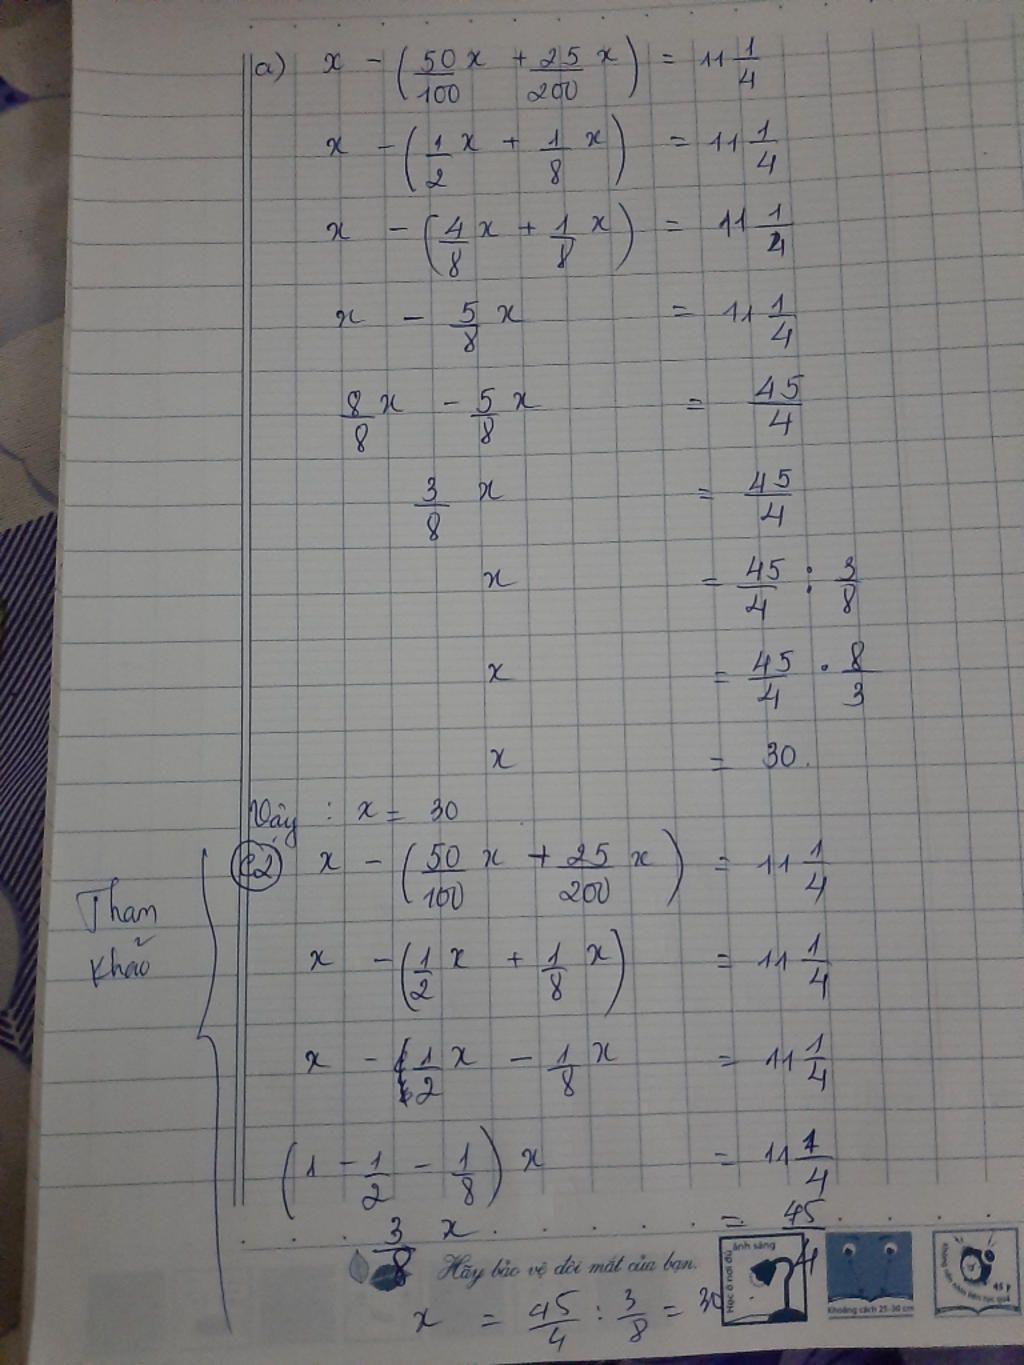 a) x - (50/100 x + 25/200 x) = 11 1/4
x - (1/2 x + 1/8 x) = 11 1/4
x - (4/8 x + 1/8 x) = 11 1/4
x - 5/8 x = 11 1/4
8/8 x - 5/8 x = 45/4
3/8 x = 45/4
x = 45/4 : 3/8
x = 45/4 . 8/3
x = 30.
Vậy : x = 30
Tham khảo
C2 x - (50/100 x + 25/200 x) = 11 1/4
x - (1/2 x + 1/8 x) = 11 1/4
x - 1/2 x - 1/8 x = 11 1/4
(1 - 1/2 - 1/8) x = 11 1/4
3/8 x = 45/4
Hãy bảo vệ đôi mắt của bạn.
Học ở nơi đủ ánh sáng
Khoảng cách 25-30 cm
x = 45/4 : 3/8 = 30